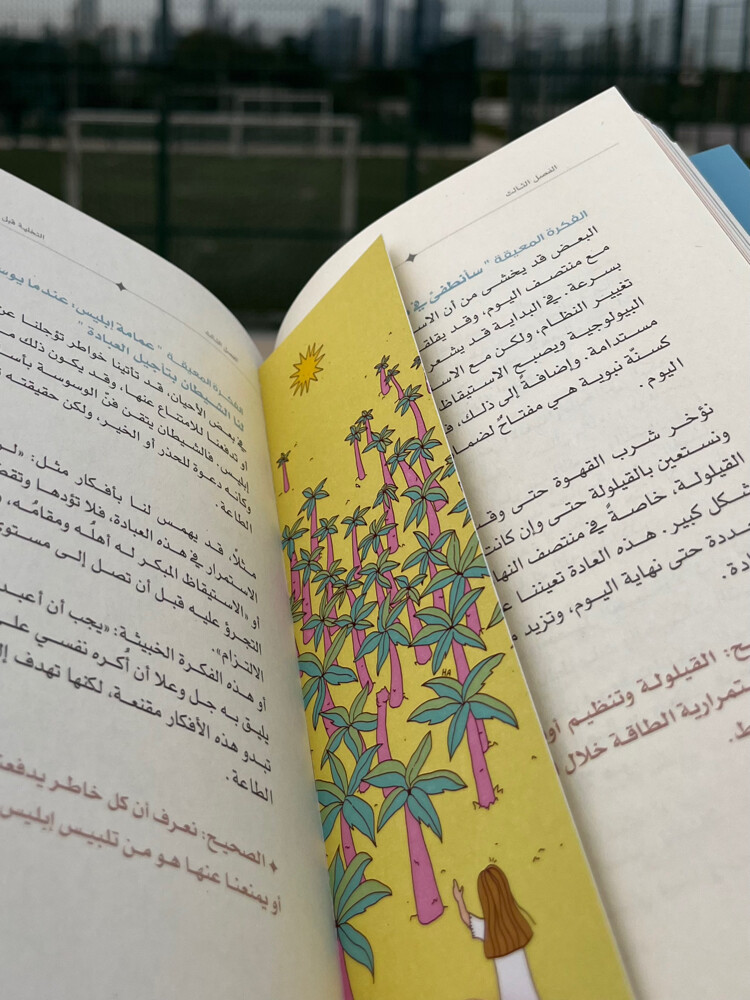 الفصل الثالث
الفكرة المعيقة "سأنطفئ في
البعض قد يخشى من أن
مع منتصف اليوم، وقد
بسرعة. في البداية قد يشعر
تغيير النظام، ولكن مع
البيولوجية ويصبح الاستيقاظ
مستدامة. وإضافة إلى ذلك،
كسنّة نبوية هي مفتاحٌ
اليوم.
نؤخر شرب القهوة حتى
ونستعين بالقيلولة حتى وإن كانت
القيلولة، خاصةً في منتصف
شكل كبير. هذه العادة تعيننا
حتى نهاية اليوم، وتزيد
القيلولة وتنظيم
الطاقة خلال
التخلية قبل
الفكرة المعيقة "عمامة إبليس: عندما
لنا الشيطان بتأجيل العبادة"
في بعض الأحيان، قد تأتينا خواطر تؤجلنا
أو تدفعنا للامتناع عنها، وقد يكون ذلك
إبليس. فالشيطان يتقن فنّ الوسوسة
وكأنه دعوة للحذر أو الخير، ولكن حقيقته
الطاعة.
مثلًا، قد يهمس لنا بأفكار مثل:
الاستمرار في هذه العبادة، فلا تؤدها
أو «الاستيقاظ المبكر له أهلُه ومقامُه،
التجرؤ عليه قبل أن تصل إلى مستوى
الالتزام».
أو هذه الفكرة الخبيثة: «يجب أن أعبد
يليق به جل وعلا أن أُكره نفسي على
تبدو هذه الأفكار مقنعة، لكنها تهدف
الطاعة.
✦ الصحيح: نعرف أن كل خاطر يدفعنا
أو يمنعنا عنها هو من تلبيس إبليس
HA